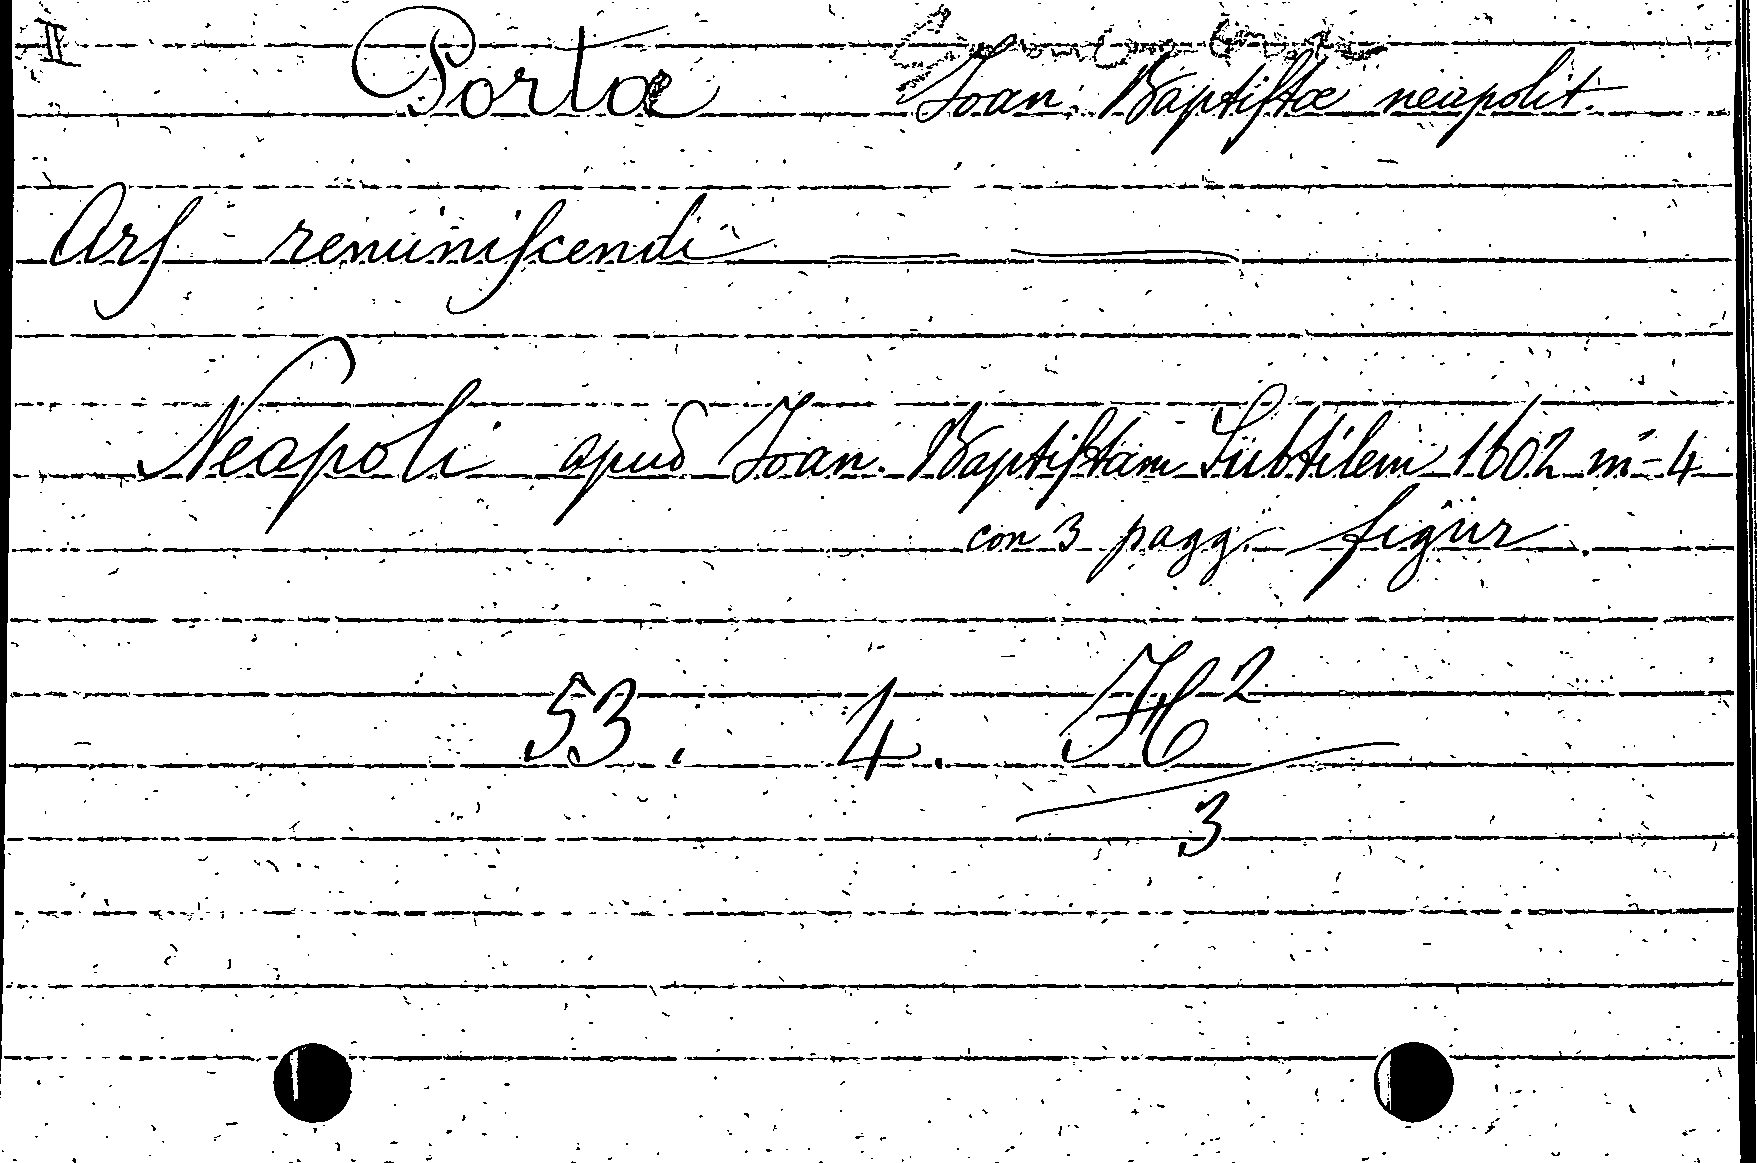 II
Portæ Joan. Baptiſtæ neapolit.
Arſ reminiſcendi
Neapoli apud Joan. Baptiſtam Subtilem 1602 in-4
con 3 pagg. figur.
53. 4. H²
3